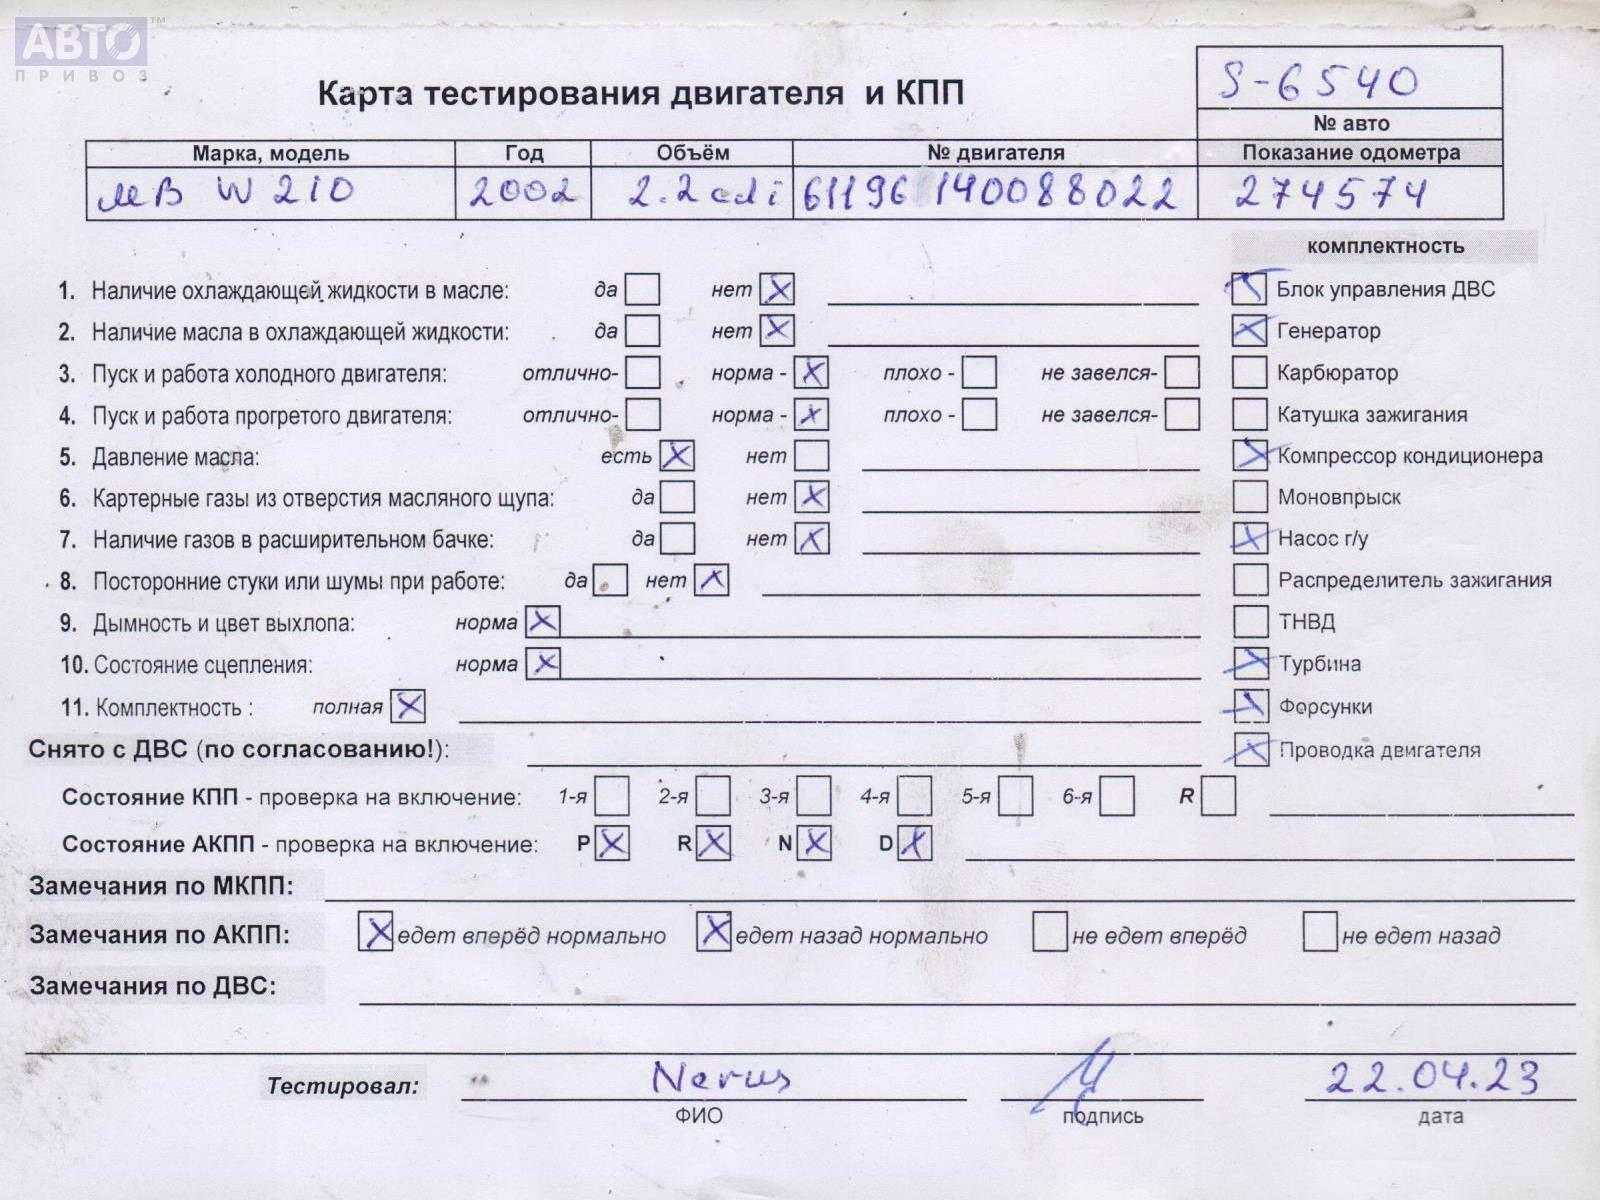 АВТО™
ПРИВОЗ
S-6540
Карта тестирования двигателя и КПП
№ авто
Марка, модель Год Объём № двигателя Показание одометра
MB W210 2002 2.2 cdi 61196140088022 274574
комплектность
1. Наличие охлаждающей жидкости в масле: да нет X Блок управления ДВС
2. Наличие масла в охлаждающей жидкости: да нет X X Генератор
3. Пуск и работа холодного двигателя: отлично- норма - X плохо - не завелся- Карбюратор
4. Пуск и работа прогретого двигателя: отлично- норма - X плохо - не завелся- Катушка зажигания
5. Давление масла: есть X нет X Компрессор кондиционера
6. Картерные газы из отверстия масляного щупа: да нет X Моновпрыск
7. Наличие газов в расширительном бачке: да нет X X Насос г/у
8. Посторонние стуки или шумы при работе: да нет X Распределитель зажигания
9. Дымность и цвет выхлопа: норма X ТНВД
10. Состояние сцепления: норма X X Турбина
11. Комплектность : полная X X Форсунки
Снято с ДВС (по согласованию!): X Проводка двигателя
Состояние КПП - проверка на включение: 1-я 2-я 3-я 4-я 5-я 6-я R
Состояние АКПП - проверка на включение: P X R X N X D X
Замечания по МКПП:
Замечания по АКПП: X едет вперёд нормально X едет назад нормально не едет вперёд не едет назад
Замечания по ДВС:
Тестировал: Nerus 22.04.23
ФИО подпись дата